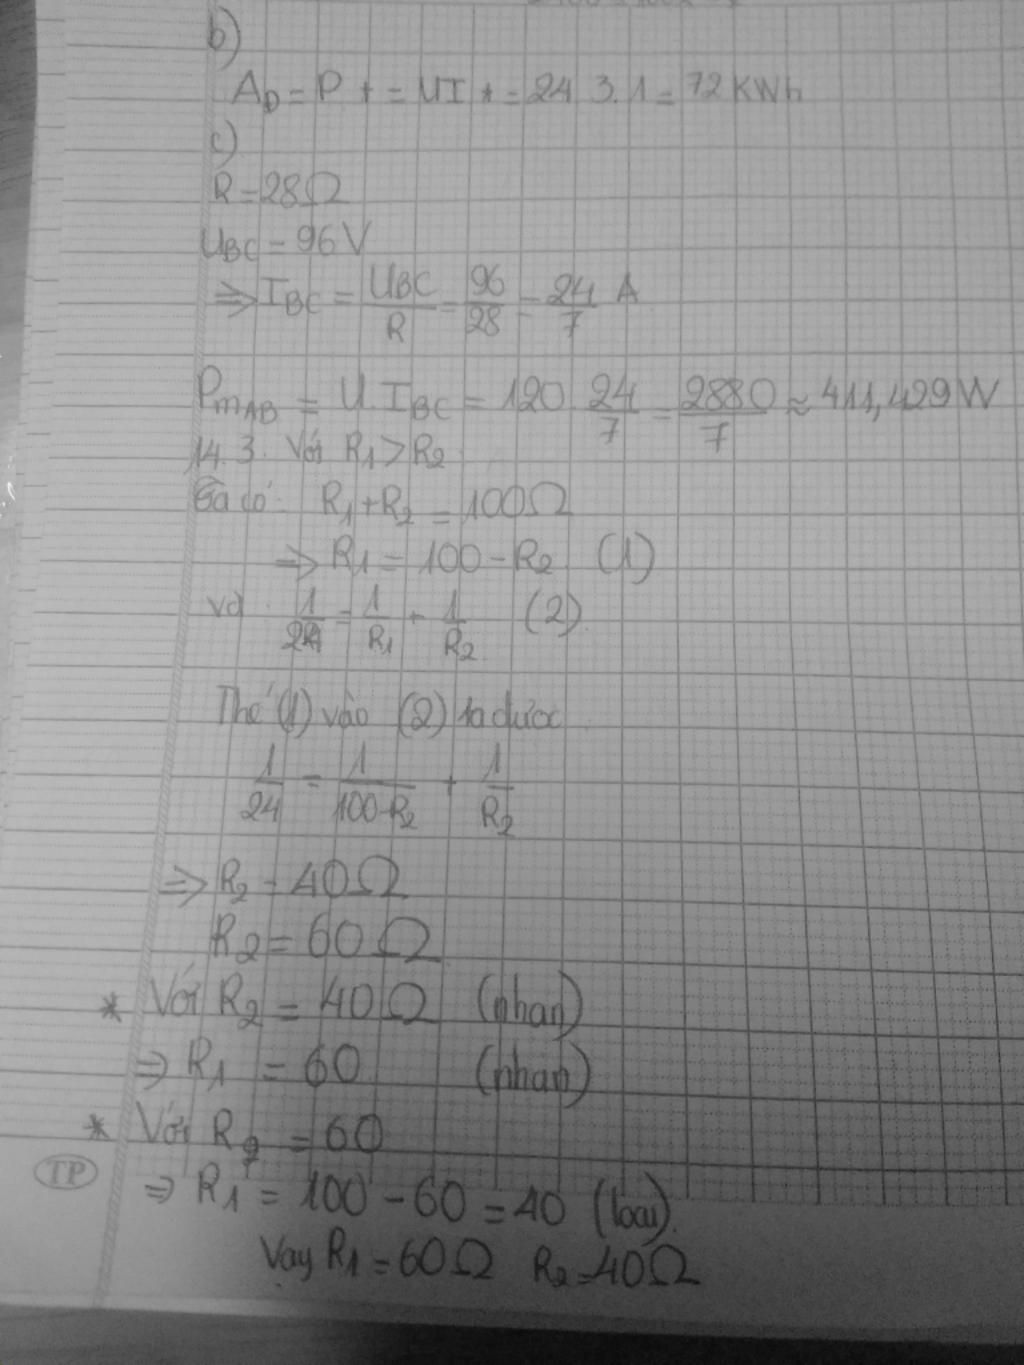 b)
A_D = P t = UI t = 24 . 3 . 1 = 72 KWh
c)
R = 28Ω
U_BC = 96 V
⇒ I_BC = U_BC / R = 96/28 = 24/7 A
P_mAB = U . I_BC = 120 . 24/7 = 2880/7 ≈ 411,429 W
14.3. Với R1 > R2
Ta có: R1 + R2 = 100Ω
⇒ R1 = 100 - R2 (1)
và 1/24 = 1/R1 + 1/R2 (2)
Thế (1) vào (2) ta được
1/24 = 1/(100-R2) + 1/R2
⇒ R2 = 40Ω
R2 = 60Ω
* Với R2 = 40Ω (nhận)
⇒ R1 = 60 (nhận)
* Với R2 = 60
⇒ R1 = 100 - 60 = 40 (loại).
Vậy R1 = 60Ω R2 = 40Ω
TP